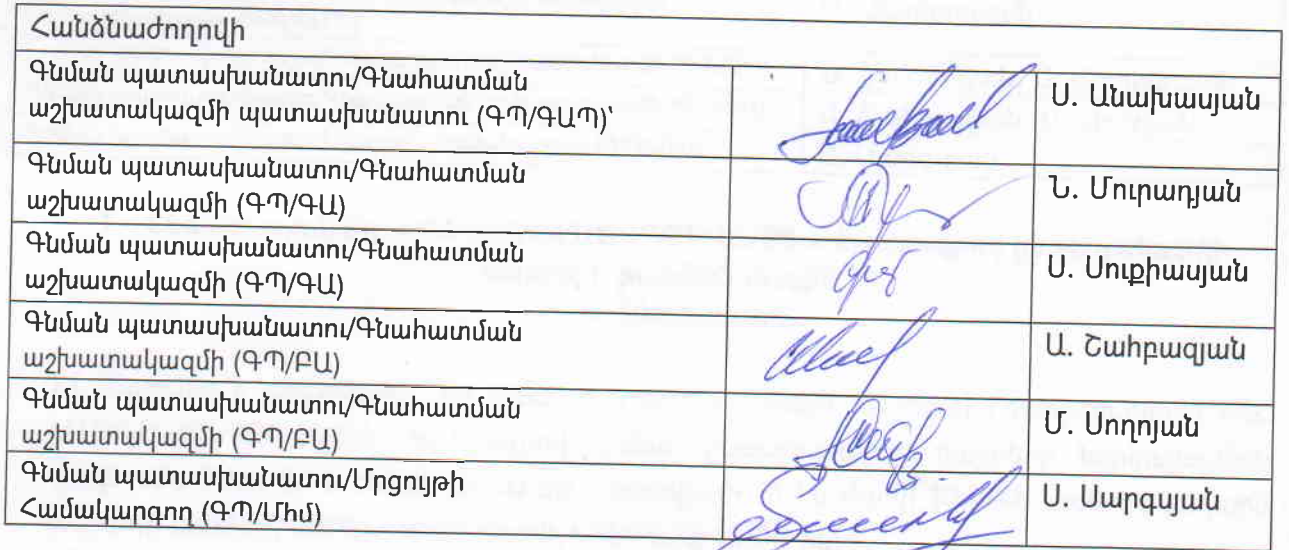 Հանձնաժողովի
Գնման պատասխանատու/Գնահատման
աշխատակազմի պատասխանատու (ԳՊ/ԳԱՊ)՝
Ս. Անախասյան
Գնման պատասխանատու/Գնահատման
աշխատակազմի (ԳՊ/ԳԱ)
Ն. Մուրադյան
Գնման պատասխանատու/Գնահատման
աշխատակազմի (ԳՊ/ԳԱ)
Ս. Սուքիասյան
Գնման պատասխանատու/Գնահատման
աշխատակազմի (ԳՊ/ԲԱ)
Ա. Շահբազյան
Գնման պատասխանատու/Գնահատման
աշխատակազմի (ԳՊ/ԲԱ)
Մ. Սողոյան
Գնման պատասխանատու/Մրցույթի
Համակարգող (ԳՊ/Մհմ)
Ս. Սարգսյան